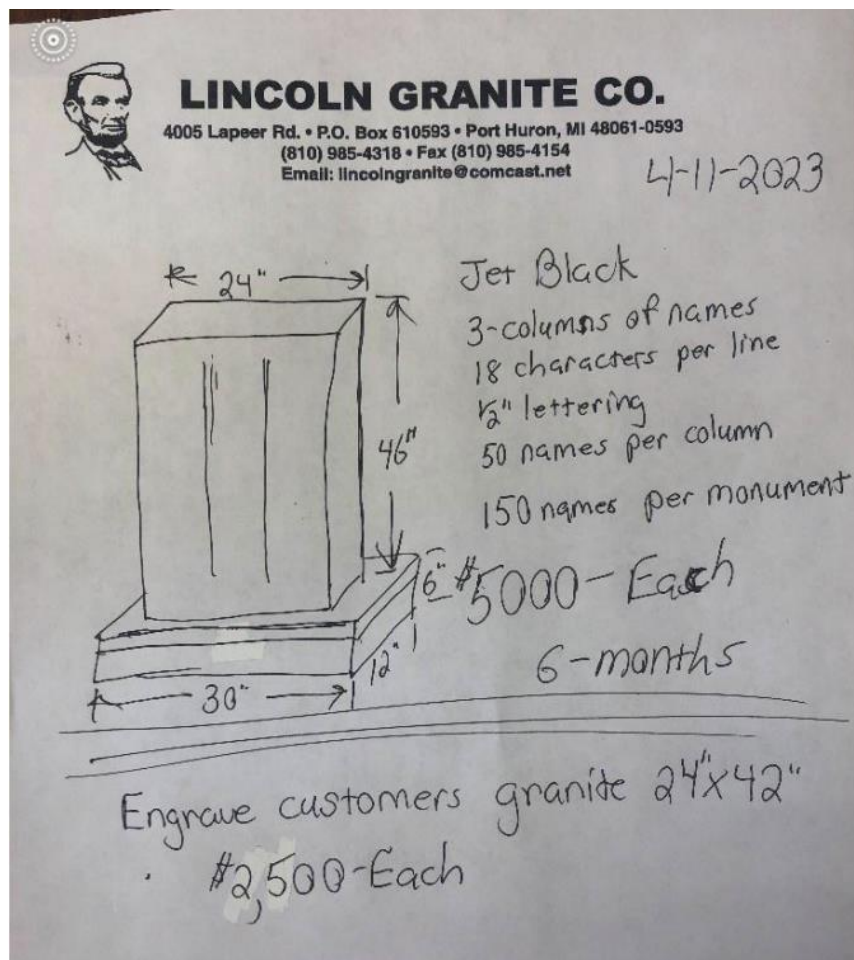 LINCOLN GRANITE CO.
4005 Lapeer Rd. • P.O. Box 610593 • Port Huron, MI 48061-0593
(810) 985-4318 • Fax (810) 985-4154
Email: lincolngranite@comcast.net
4-11-2023
24"
Jet Black
3-columns of names
18 characters per line
1/2" lettering
46"
50 names per column
150 names per monument
6"
$5000- Each
12"
6-months
30"
Engrave customers granite 24"x42"
$2,500-Each